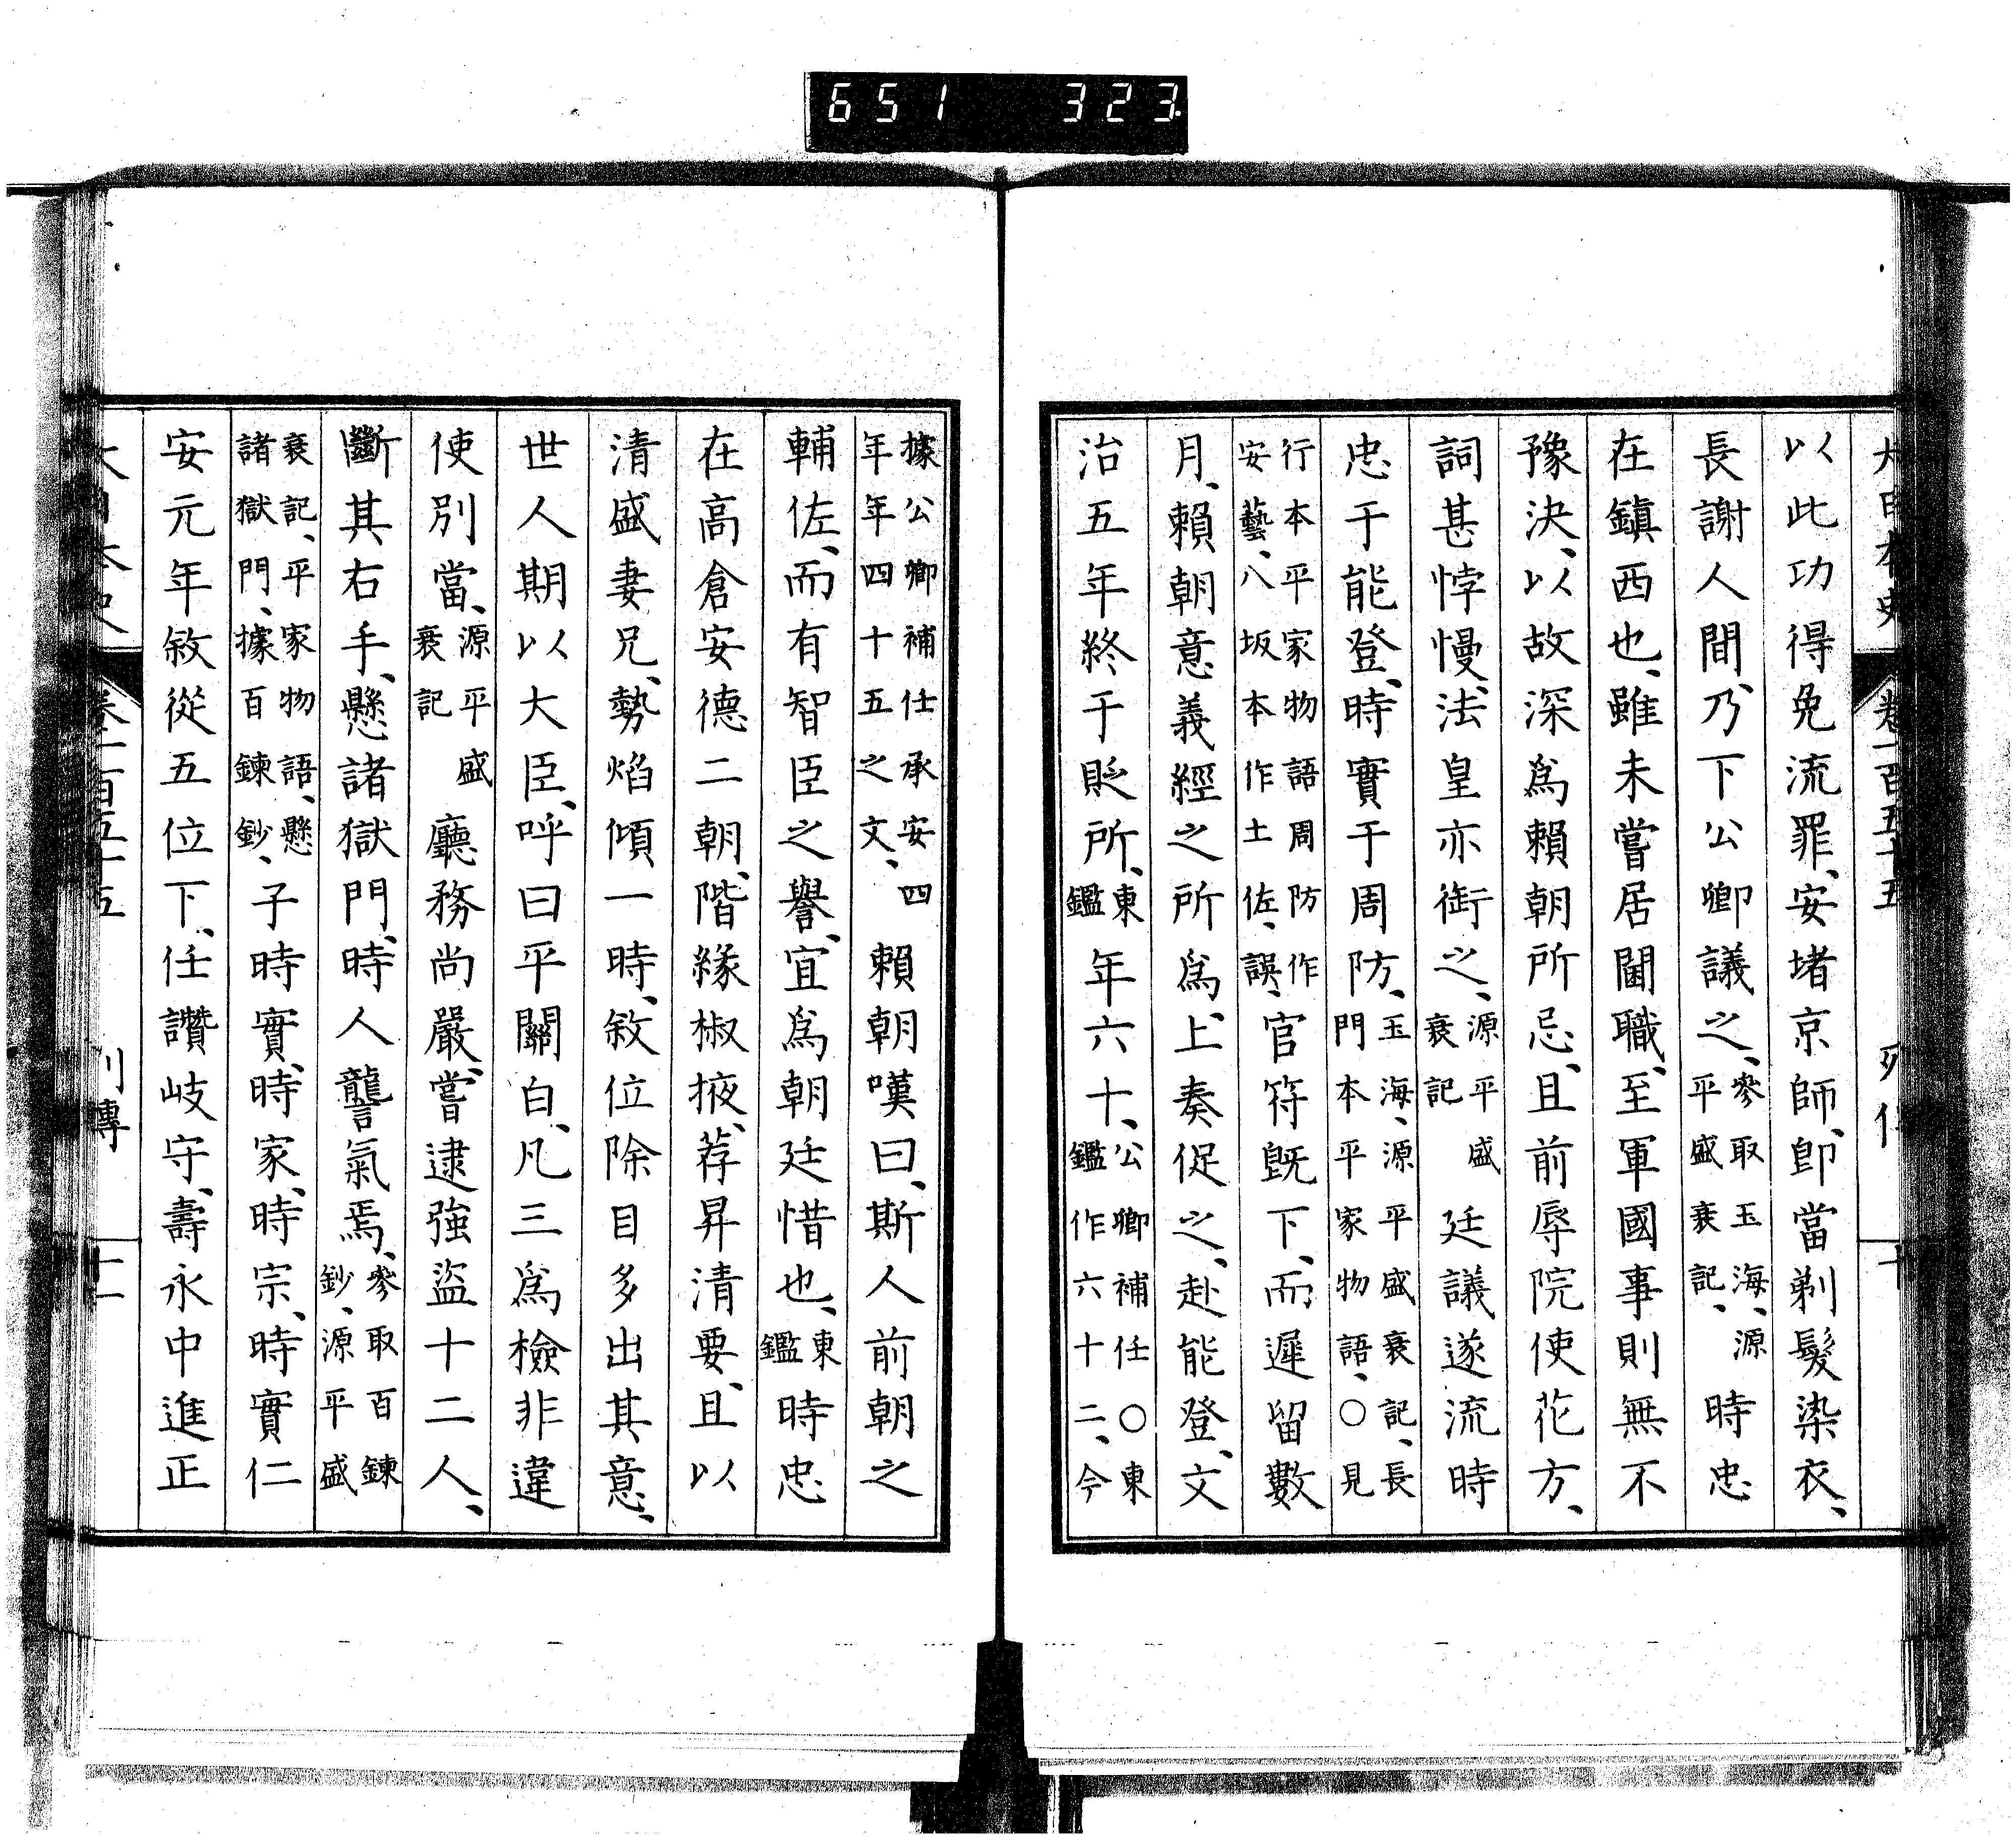 651 323
大日本史 卷一百五十五 列傳 十
以此功得免流罪、安堵京師、卽當剃髮染衣、
長謝人間、乃下公卿議之、參取玉海、源平盛衰記、時忠
在鎭西也、雖未嘗居閫職、至軍國事則無不
豫決、以故深爲賴朝所忌、且前辱院使花方、
詞甚悖慢、法皇亦銜之、源平盛衰記廷議遂流時
忠于能登、時實于周防、玉海、源平盛衰記、長門本平家物語、○見
行本平家物語周防作安藝、八坂本作土佐、誤、官符旣下、而遲留數
月、賴朝意義經之所爲、上奏促之、赴能登、文
治五年終于貶所、東鑑年六十、公卿補任○東鑑作六十二、今
據公卿補任承安四年年四十五之文、賴朝嘆曰、斯人前朝之
輔佐、而有智臣之譽、宜爲朝廷惜也、東鑑時忠
在高倉安德二朝、階緣椒掖、荐昇清要、且以
清盛妻兄、勢焰傾一時、敘位除目多出其意、
世人期以大臣、呼曰平關白、凡三爲檢非違
使別當、源平盛衰記廳務尚嚴、嘗逮強盜十二人、
斷其右手、懸諸獄門、時人讋氣焉、參取百鍊鈔、源平盛
衰記、平家物語、懸諸獄門、據百鍊鈔、子時實、時家、時宗、時實仁
安元年敘從五位下、任讚岐守、壽永中進正
大日本史 卷一百五十五 列傳 十一